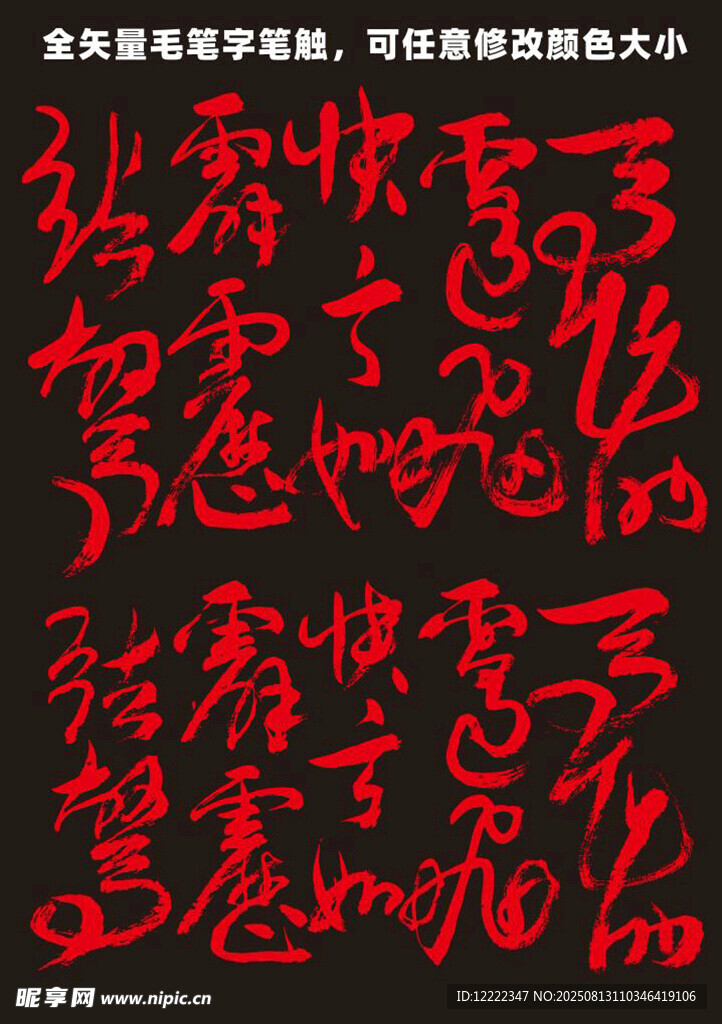 全矢量毛笔字笔触，可任意修改颜色大小
馬作的
盧飛
快弓如
霹靂
弦驚
馬作的
盧飛
快弓如
霹靂
弦驚
昵享网 www.nipic.cn
ID:12222347 NO:20250813110346419106